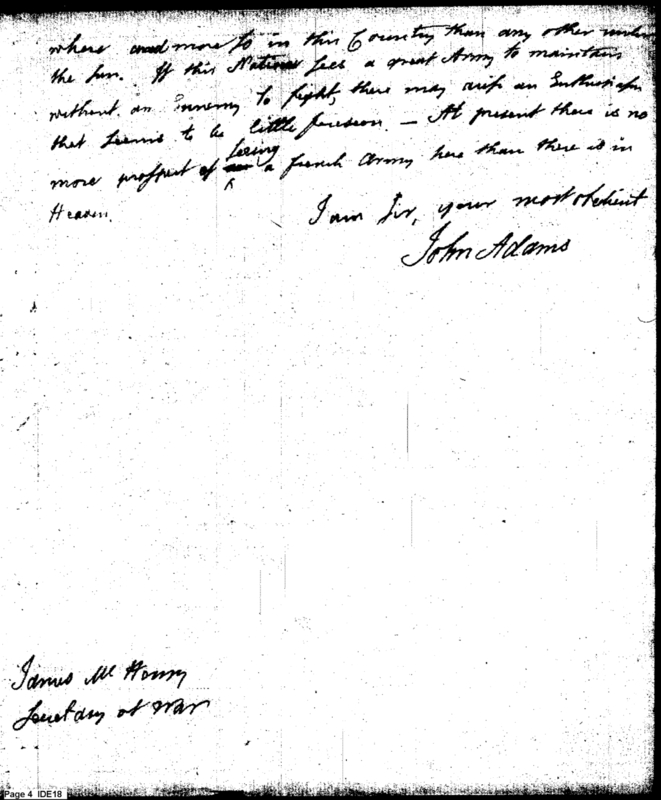 where and more so in this Country than any other under
the sun. If this Nation sees a great Army to maintain
without an Ennemy to fight, there may arise an Enthusiasm
that seems to be little foreseen. — At present there is no
more prospect of seeing a french Army here than there is in
Heaven.
I am Sir, your most obedient
John Adams
James McHenry
Secretary at War
Page 4 IDE18